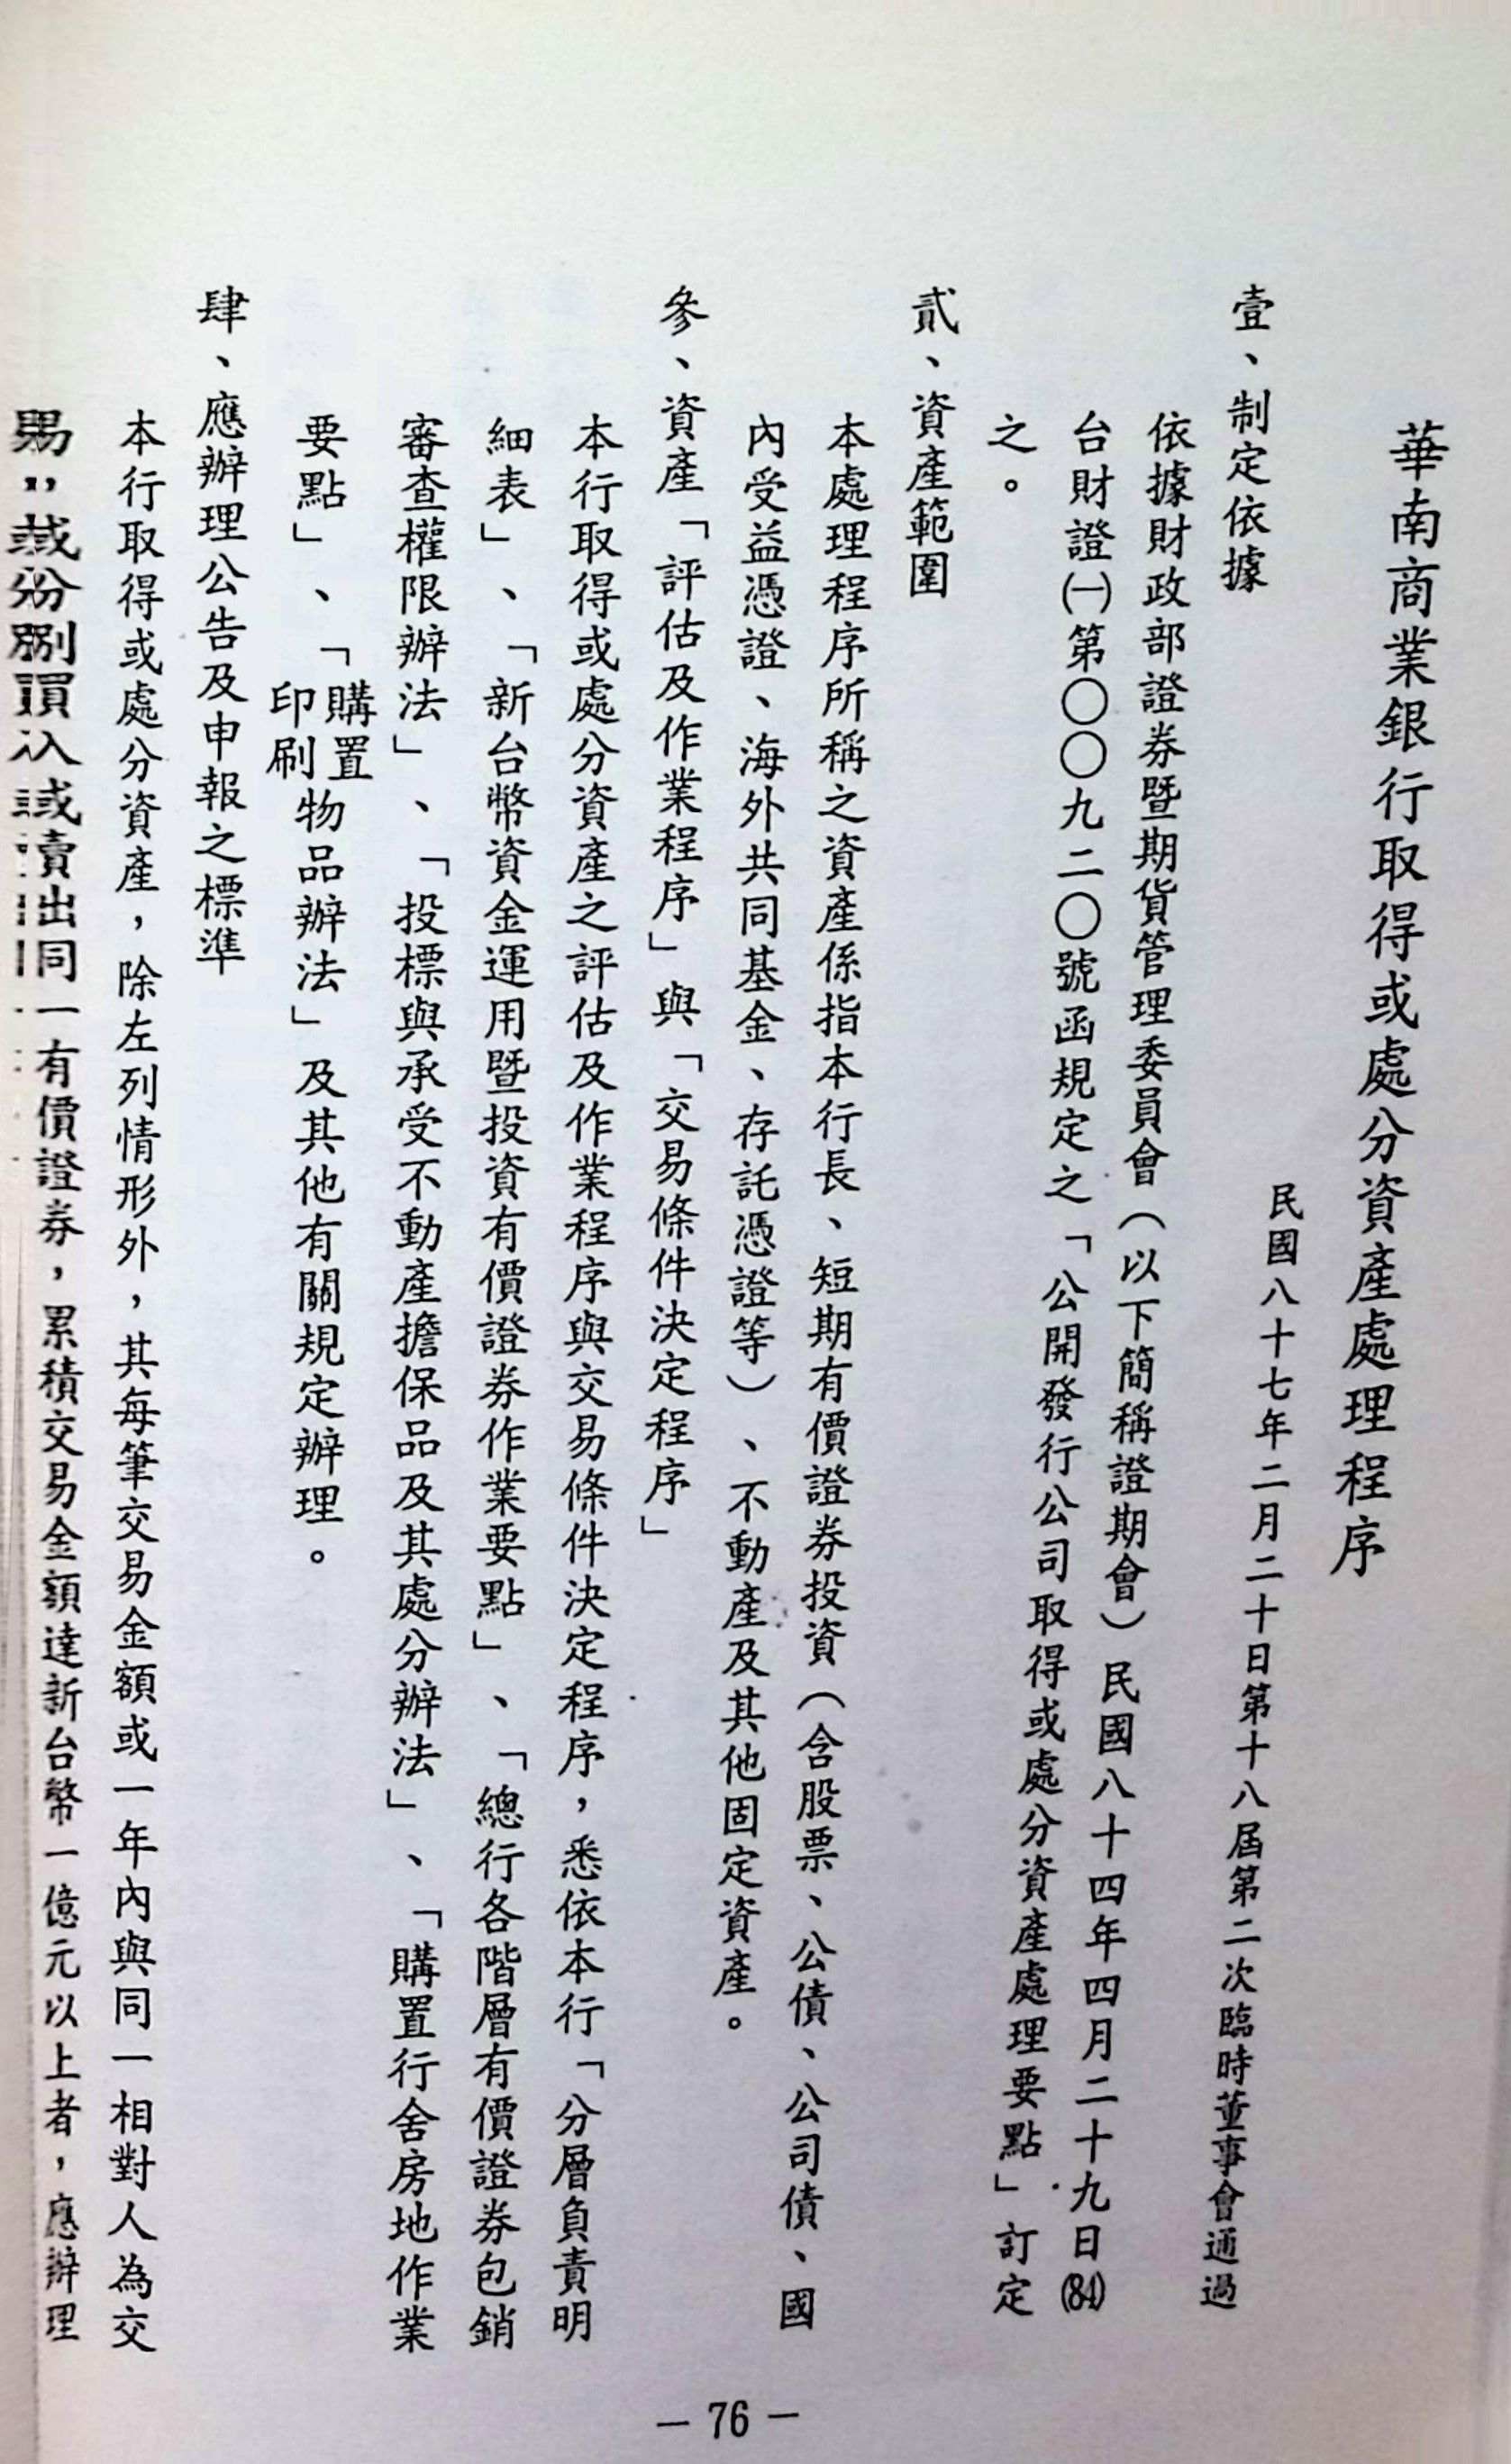 華南商業銀行取得或處分資產處理程序
民國八十七年二月二十日第十八屆第二次臨時董事會通過
壹、制定依據
依據財政部證券暨期貨管理委員會（以下簡稱證期會）民國八十四年四月二十九日(84)
台財證㈠第〇〇九二〇號函規定之「公開發行公司取得或處分資產處理要點」訂定
之。
貳、資產範圍
本處理程序所稱之資產係指本行長、短期有價證券投資（含股票、公債、公司債、國
內受益憑證、海外共同基金、存託憑證等）、不動產及其他固定資產。
參、資產「評估及作業程序」與「交易條件決定程序」
本行取得或處分資產之評估及作業程序與交易條件決定程序，悉依本行「分層負責明
細表」、「新台幣資金運用暨投資有價證券作業要點」、「總行各階層有價證券包銷
審查權限辦法」、「投標與承受不動產擔保品及其處分辦法」、「購置行舍房地作業
要點」、「購置印刷物品辦法」及其他有關規定辦理。
肆、應辦理公告及申報之標準
本行取得或處分資產，除左列情形外，其每筆交易金額或一年內與同一相對人為交
入或賣出同一有價證券，累積交易金額達新台幣一億元以上者，應辦理
— 76 —